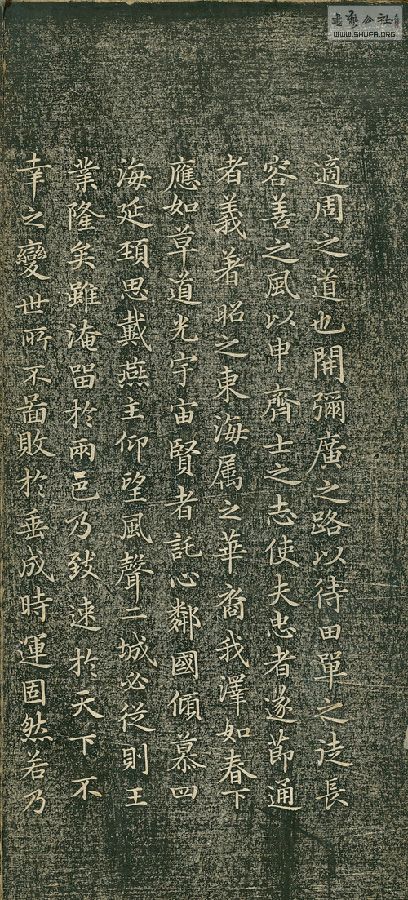 適周之道也開彌廣之路以待田單之徒長
容善之風以申齊士之志使夫忠者遂節通
者義著昭之東海属之華裔我澤如春下
應如草道光宇宙賢者託心鄰國傾慕四
海延頚思戴燕主仰望風聲二城必從則王
業隆矣雖淹留於兩邑乃致速於天下不
幸之變世所不啚敗於垂成時運固然若乃
WWW.SHUFA.ORG